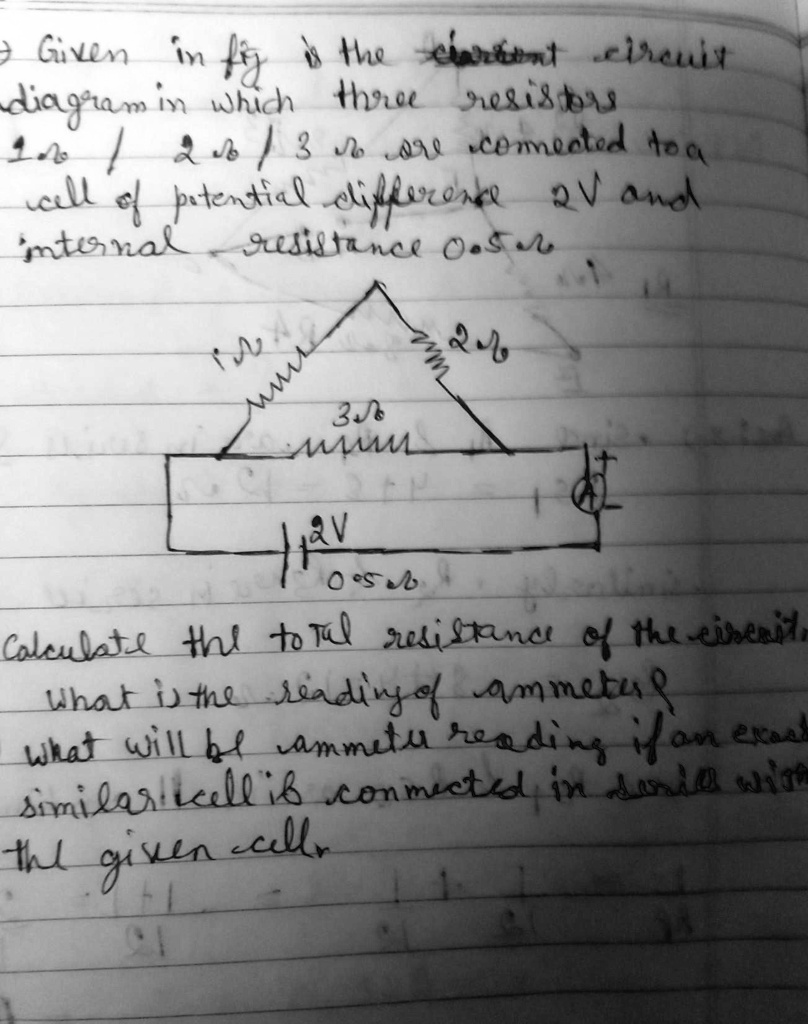 Given in fig is the circuit
diagram in which three resistors
1Ω / 2Ω / 3Ω are connected to a
cell of potential difference 2V and
internal resistance 0.5Ω
1Ω
2Ω
3Ω
+
A
-
2V
0.5Ω
Calculate the total resistance of the circuit.
What is the reading of ammeter?
What will be ammeter reading if an exact
similar cell is connected in series with
the given cell.